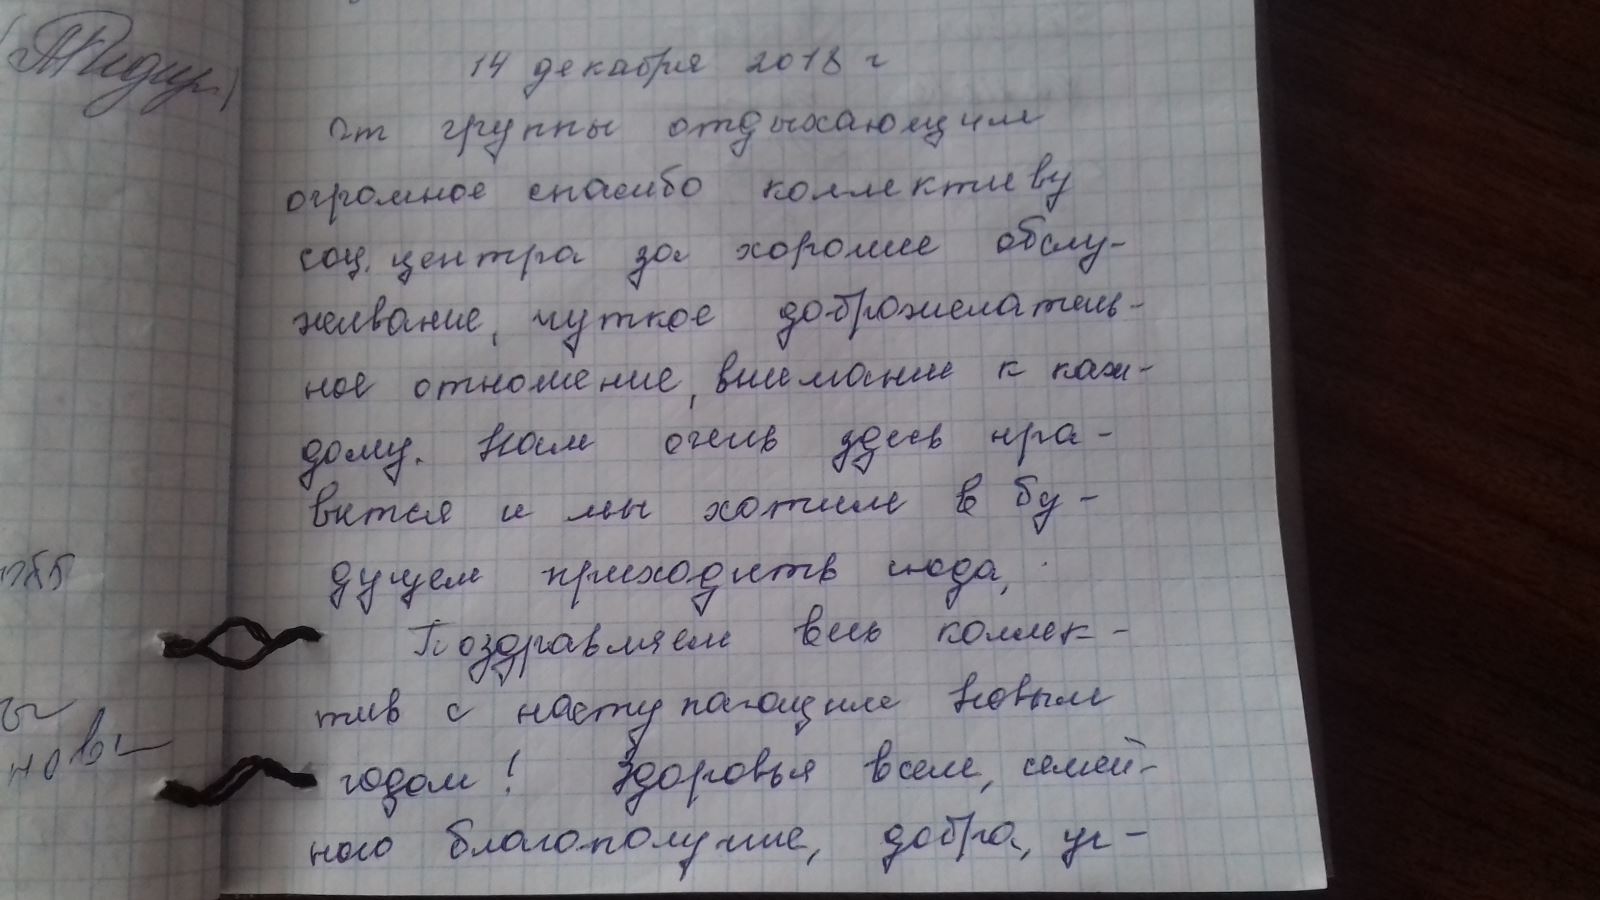 14 декабря 2018 г
От группы отдыхающим
огромное спасибо коллективу
соц. центра за хорошие обслу-
живание, чуткое доброжелатель-
ное отношение, внимание к каж-
дому. Нам очень здесь нра-
вится и мы хотим в бу-
дущем приходить сюда,
Поздравляем весь коллек-
тив с наступающим Новым
годом! Здоровья всем, семей-
ного благополучие, добра, ус-